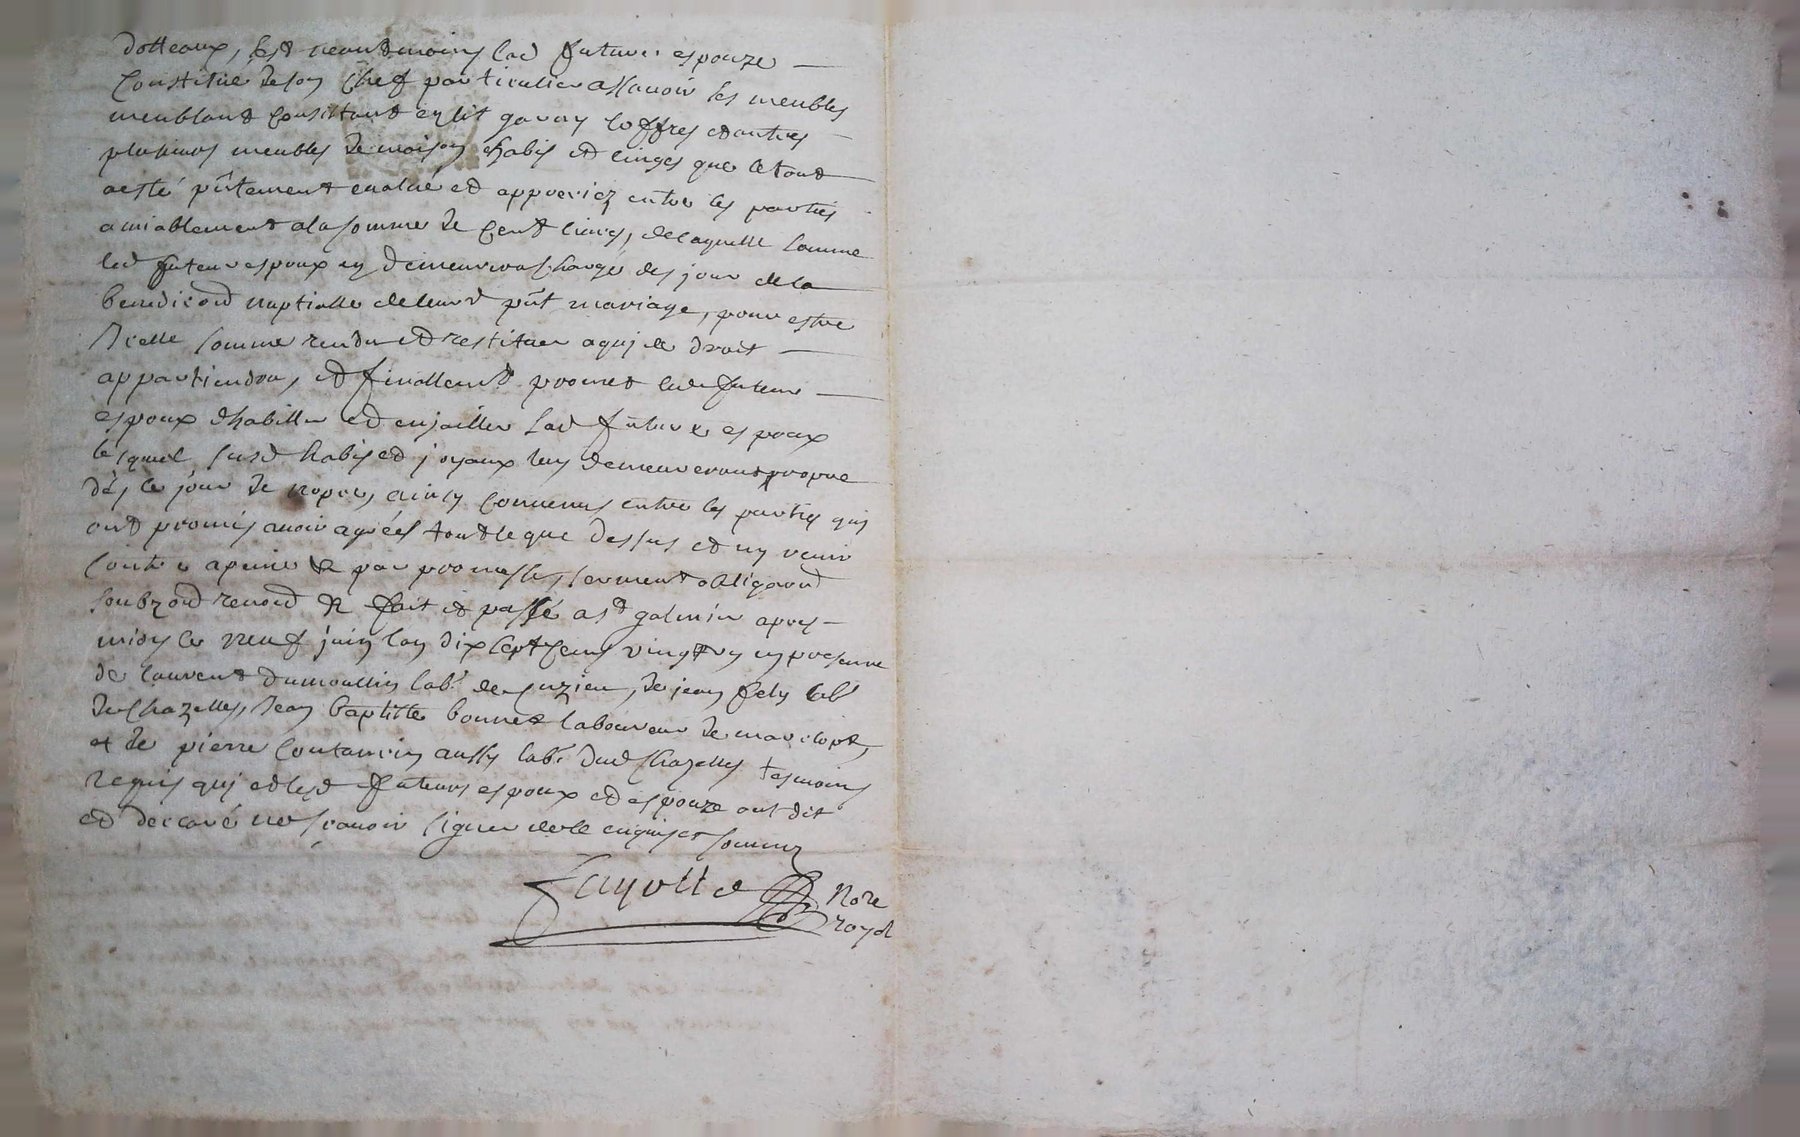 dotteaux, Est neantmoins lad future espouze
Constitue de son Chef particulier assauoir les meubles
meublant Consistant en lit garny coffres et autres
plusieurs meubles de maison habis et linges que le tout
a esté pñtement eualué et appreciez entre les parties
amiablement a la somme de Cent liures, de laquelle somme
led futeur espoux en demeurera chargé des jour de la
benediction nuptialle de leurd pñt mariage, pour estre
Icelle somme rendu et restituer a quj de droit
appartiendra, et finallemt promet led futeur
espoux d'habiller et enjoailler lad future espoux
lesquel susd habis et joyaux luy demeureront propre
dés le jour de nopces, ainsy conuenus entre les parties quj
ont promis auoir agréés tout ce que dessus et ny venir
Contre a peine &c par promesse, serment obligaõnd
soubzond renond &c fait et passé a st galmier apres
midy le neuf juin l'an dix sept cens vingt vn en presence
de laurent dumoullin labr de Cuzieu, de jean fely labr
de Chazelles, Jean baptiste bonnet laboureur de mariclopt,
et de pierre Contamin aussy labr dud Chazelles tesmoins
requis quj et lesd futeurs espoux et espouze ont dit
et declaré ne sçauoir signer de ce enquis et sommez
Fayolle Nore
royal